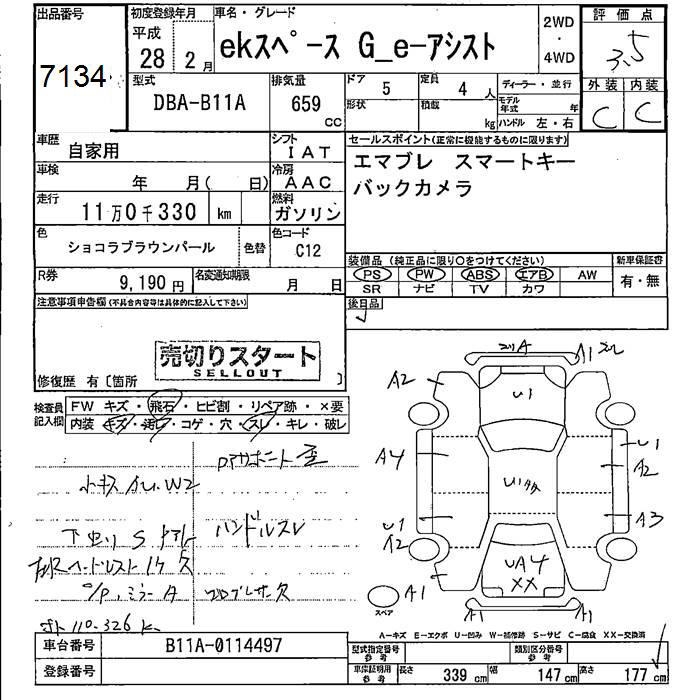 出品番号
7134
初度登録年月
平成
28 2月
車名・グレード
ekスペース G_e-アシスト
2WD
・
4WD
評価点
3.5
外装 内装
C C
型式
DBA-B11A
排気量
659
cc
ドア 5
定員 4 人
形状
積載 kg
ディーラー・並行
モデル年式 年
ハンドル 左・右
車歴
自家用
シフト
IAT
車検
年 月( 日)
冷房
AAC
走行
11万0千330 km
燃料
ガソリン
色
ショコラブラウンパール
色替
色コード
C12
R券
9,190円
名変通知期限
月 日
セールスポイント(正常に機能するものに限ります)
エマブレ スマートキー
バックカメラ
装備品 (純正品に限り○をつけてください)
PS PW ABS エアB AW
SR ナビ TV カワ
新車保証書
有・無
後日品
注意事項申告欄(不具合内容等は具体的に記入して下さい)
売切りスタート
SELLOUT
修復歴 有〔箇所 〕
検査員記入欄
FW キズ・飛石・ヒビ割・リペア跡・×要
内装 キズ・汚レ・コゲ・穴・スレ・キレ・破レ
小キズ W2
下廻り S
ハンドルスレ
ミラー A
110.326
車台番号
B11A-0114497
登録番号
A1
A2
U1
A4
U1
A2
U1
U1
A2
A3
UA4
XX
A1
A1
A1
スペア
A-キズ E-エクボ U-凹み W-補修跡 S-サビ C-腐食 XX-交換済
型式指定番号
参考
類別区分番号
参考
車庫証明用
参考
長さ 339 cm 幅 147 cm 高さ 177 cm